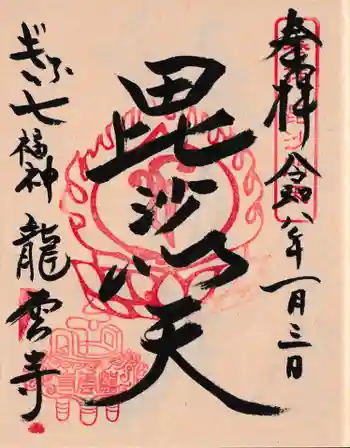 奉拝 令和八年一月三日
毘沙乃天
ぎふ七福神 龍雲寺